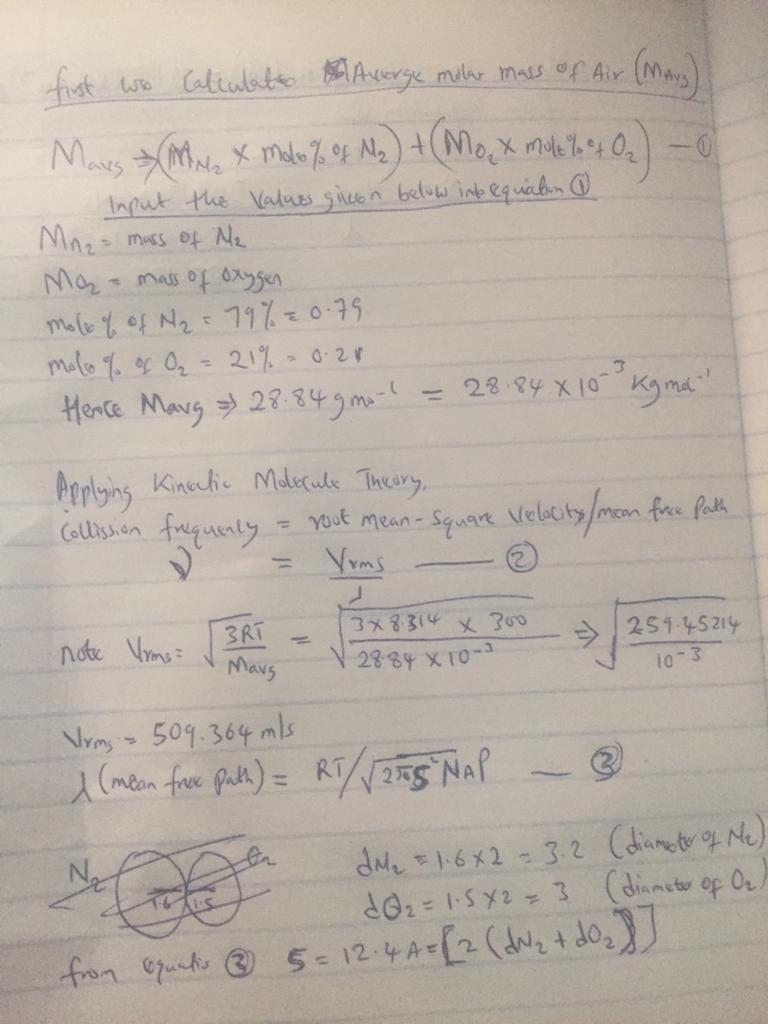 first we Calculate Average molar mass of Air (Mavg)
Mavg ⇒ (MN₂ × mole% of N₂) + (MO₂ × mole% of O₂) — ①
Input the Values given below into equation ①
Mn₂ = mass of N₂
MO₂ = mass of oxygen
mole % of N₂ = 79% = 0.79
mole % of O₂ = 21% = 0.21
Hence Mavg ⇒ 28.84 g mo⁻¹ = 28.84 × 10⁻³ Kg mol⁻¹
Applying Kinetic Molecule Theory,
Collission frequency = root mean-square velocity/mean free path
ν = Vrms/λ — ②
note Vrms = √(3RT/Mavg) = √(3 × 8.314 × 300 / 28.84 × 10⁻³) ⇒ √(259.45214 / 10⁻³)
Vrms = 509.364 m/s
λ (mean free path) = RT/√2π5² NAP — ③
N₂ O₂ dN₂ = 1.6×2 = 3.2 (diameter of N₂)
1.6 1.5 dO₂ = 1.5×2 = 3 (diameter of O₂)
from equatio ③ 5 = 12.4 A = [2 (dN₂ + dO₂)]